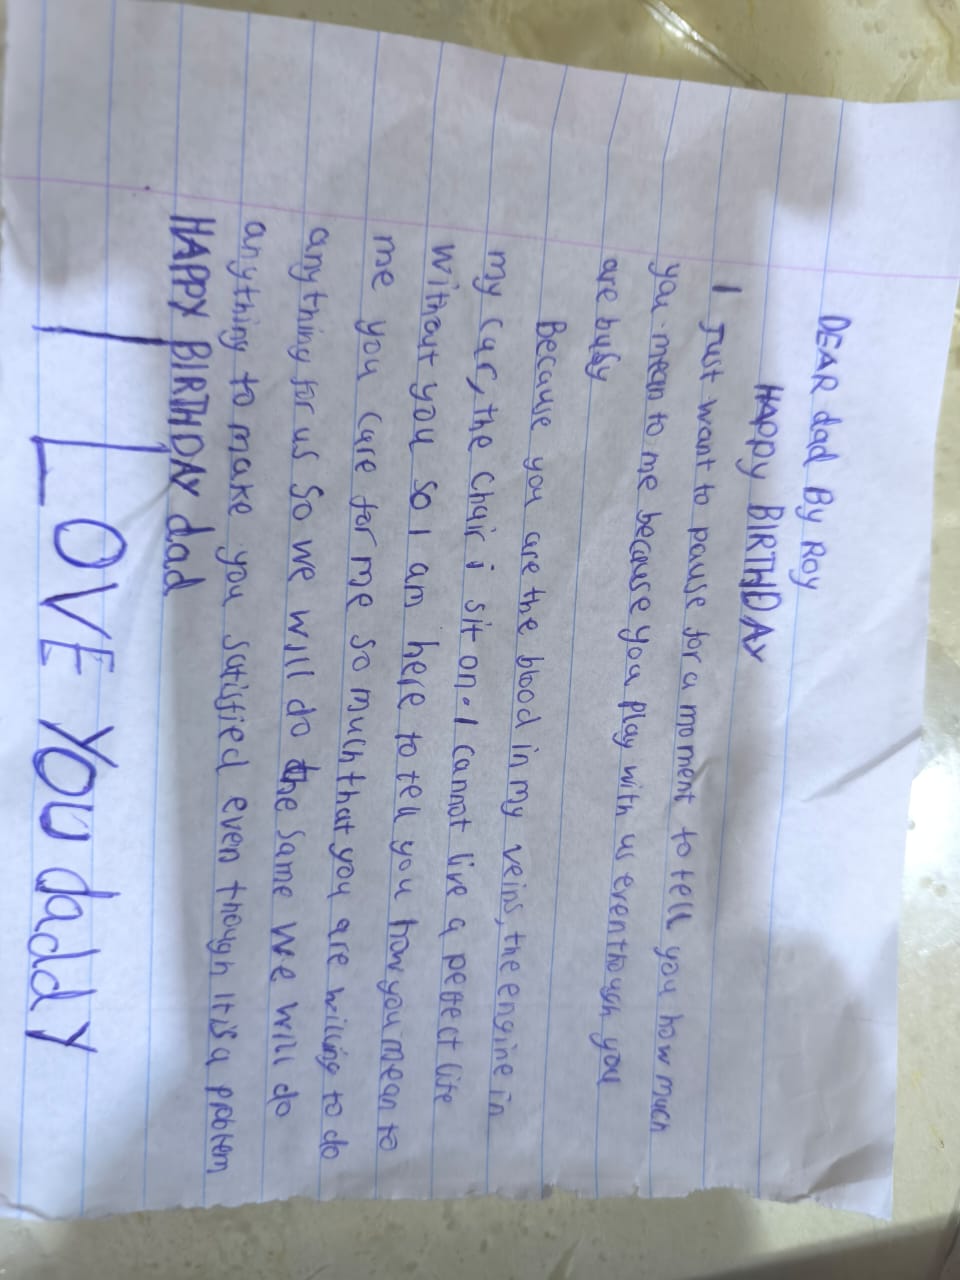 DEAR dad By Roy
HAPPY BIRTHDAY
I Just want to pause for a moment to tell you how much
you mean to me because you play with us even though you
are busy
Because you are the blood in my veins, the engine in
my car, the chair i sit on. I cannot live a perfect life
without you so I am here to tell you how you mean to
me you care for me so much that you are willing to do
anything for us So we will do the same we will do
anything to make you satisfied even though it is a problem
HAPPY BIRTHDAY dad
I LOVE YOU daddy